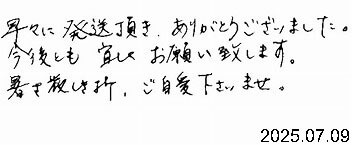 早々に発送頂き、ありがとうございました。
今後とも宜しくお願い致します。
暑さ厳しき折、ご自愛下さいませ。
2025.07.09